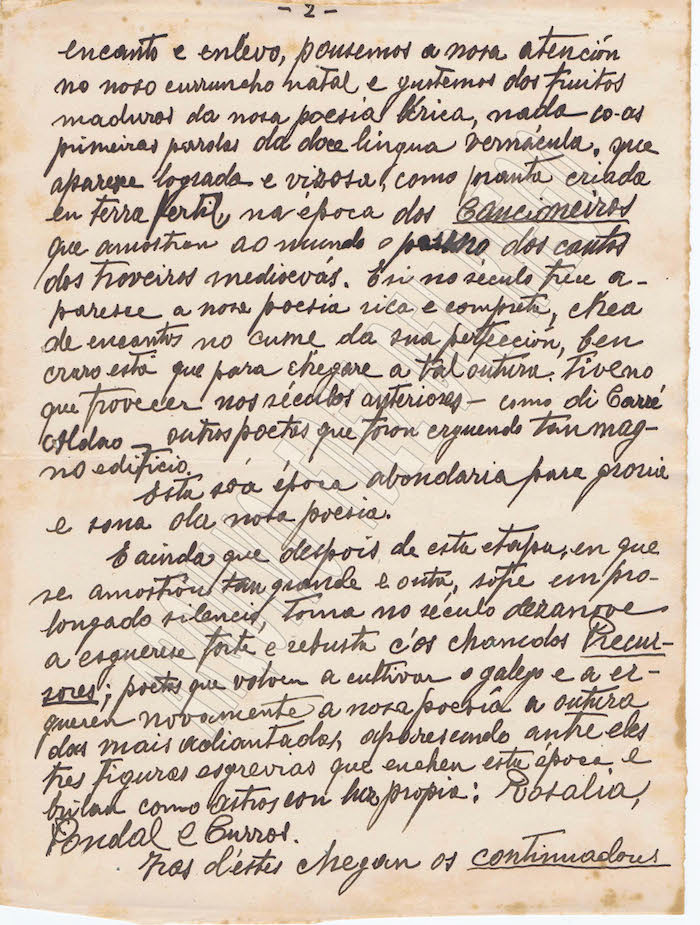 - 2 -
encanto e enlevo, pousemos a nosa atención
no noso curruncho natal e gustemos dos fruitos
maduros da nosa poesía lírica, nada co-as
primeiras parolas da doce lingua vernácula, que
aparece lograda e vizosa, como pranta criada
en terra fertil, na época dos Cancioneiros
que amostran ao mundo o dos cantos
dos troveiros medioevás. E si no século trece a-
paresce a nosa poesía rica e compreta, chea
de encantos no cume da sua perfección, ben
craro está que para chegare a tal outura tiveno
que frovecer nos séculos anteriores - como di Carré
Aldao - outros poetas que foron erguendo tan mag-
no edificio.
Esta sóa época abondaria para groria
e sona da nosa poesia.
E ainda que despois de esta etapa, en que
se amostróu tan grande e outa, sofre un pro-
longado silencio, torna no século dezanove
a erguerese forte e rebusta c'os chamados Precur-
sores; poetas que volven a cultivar o galego e a er-
gueren novamente a nosa poesía a outura
das mais adiantadas, aparescendo antre eles
tres figuras esgrevias que enchen esta época e
brilan como astros con luz propia: Rosalia,
Pondal e Curros.
Tras d'éstes chegan os continuadores